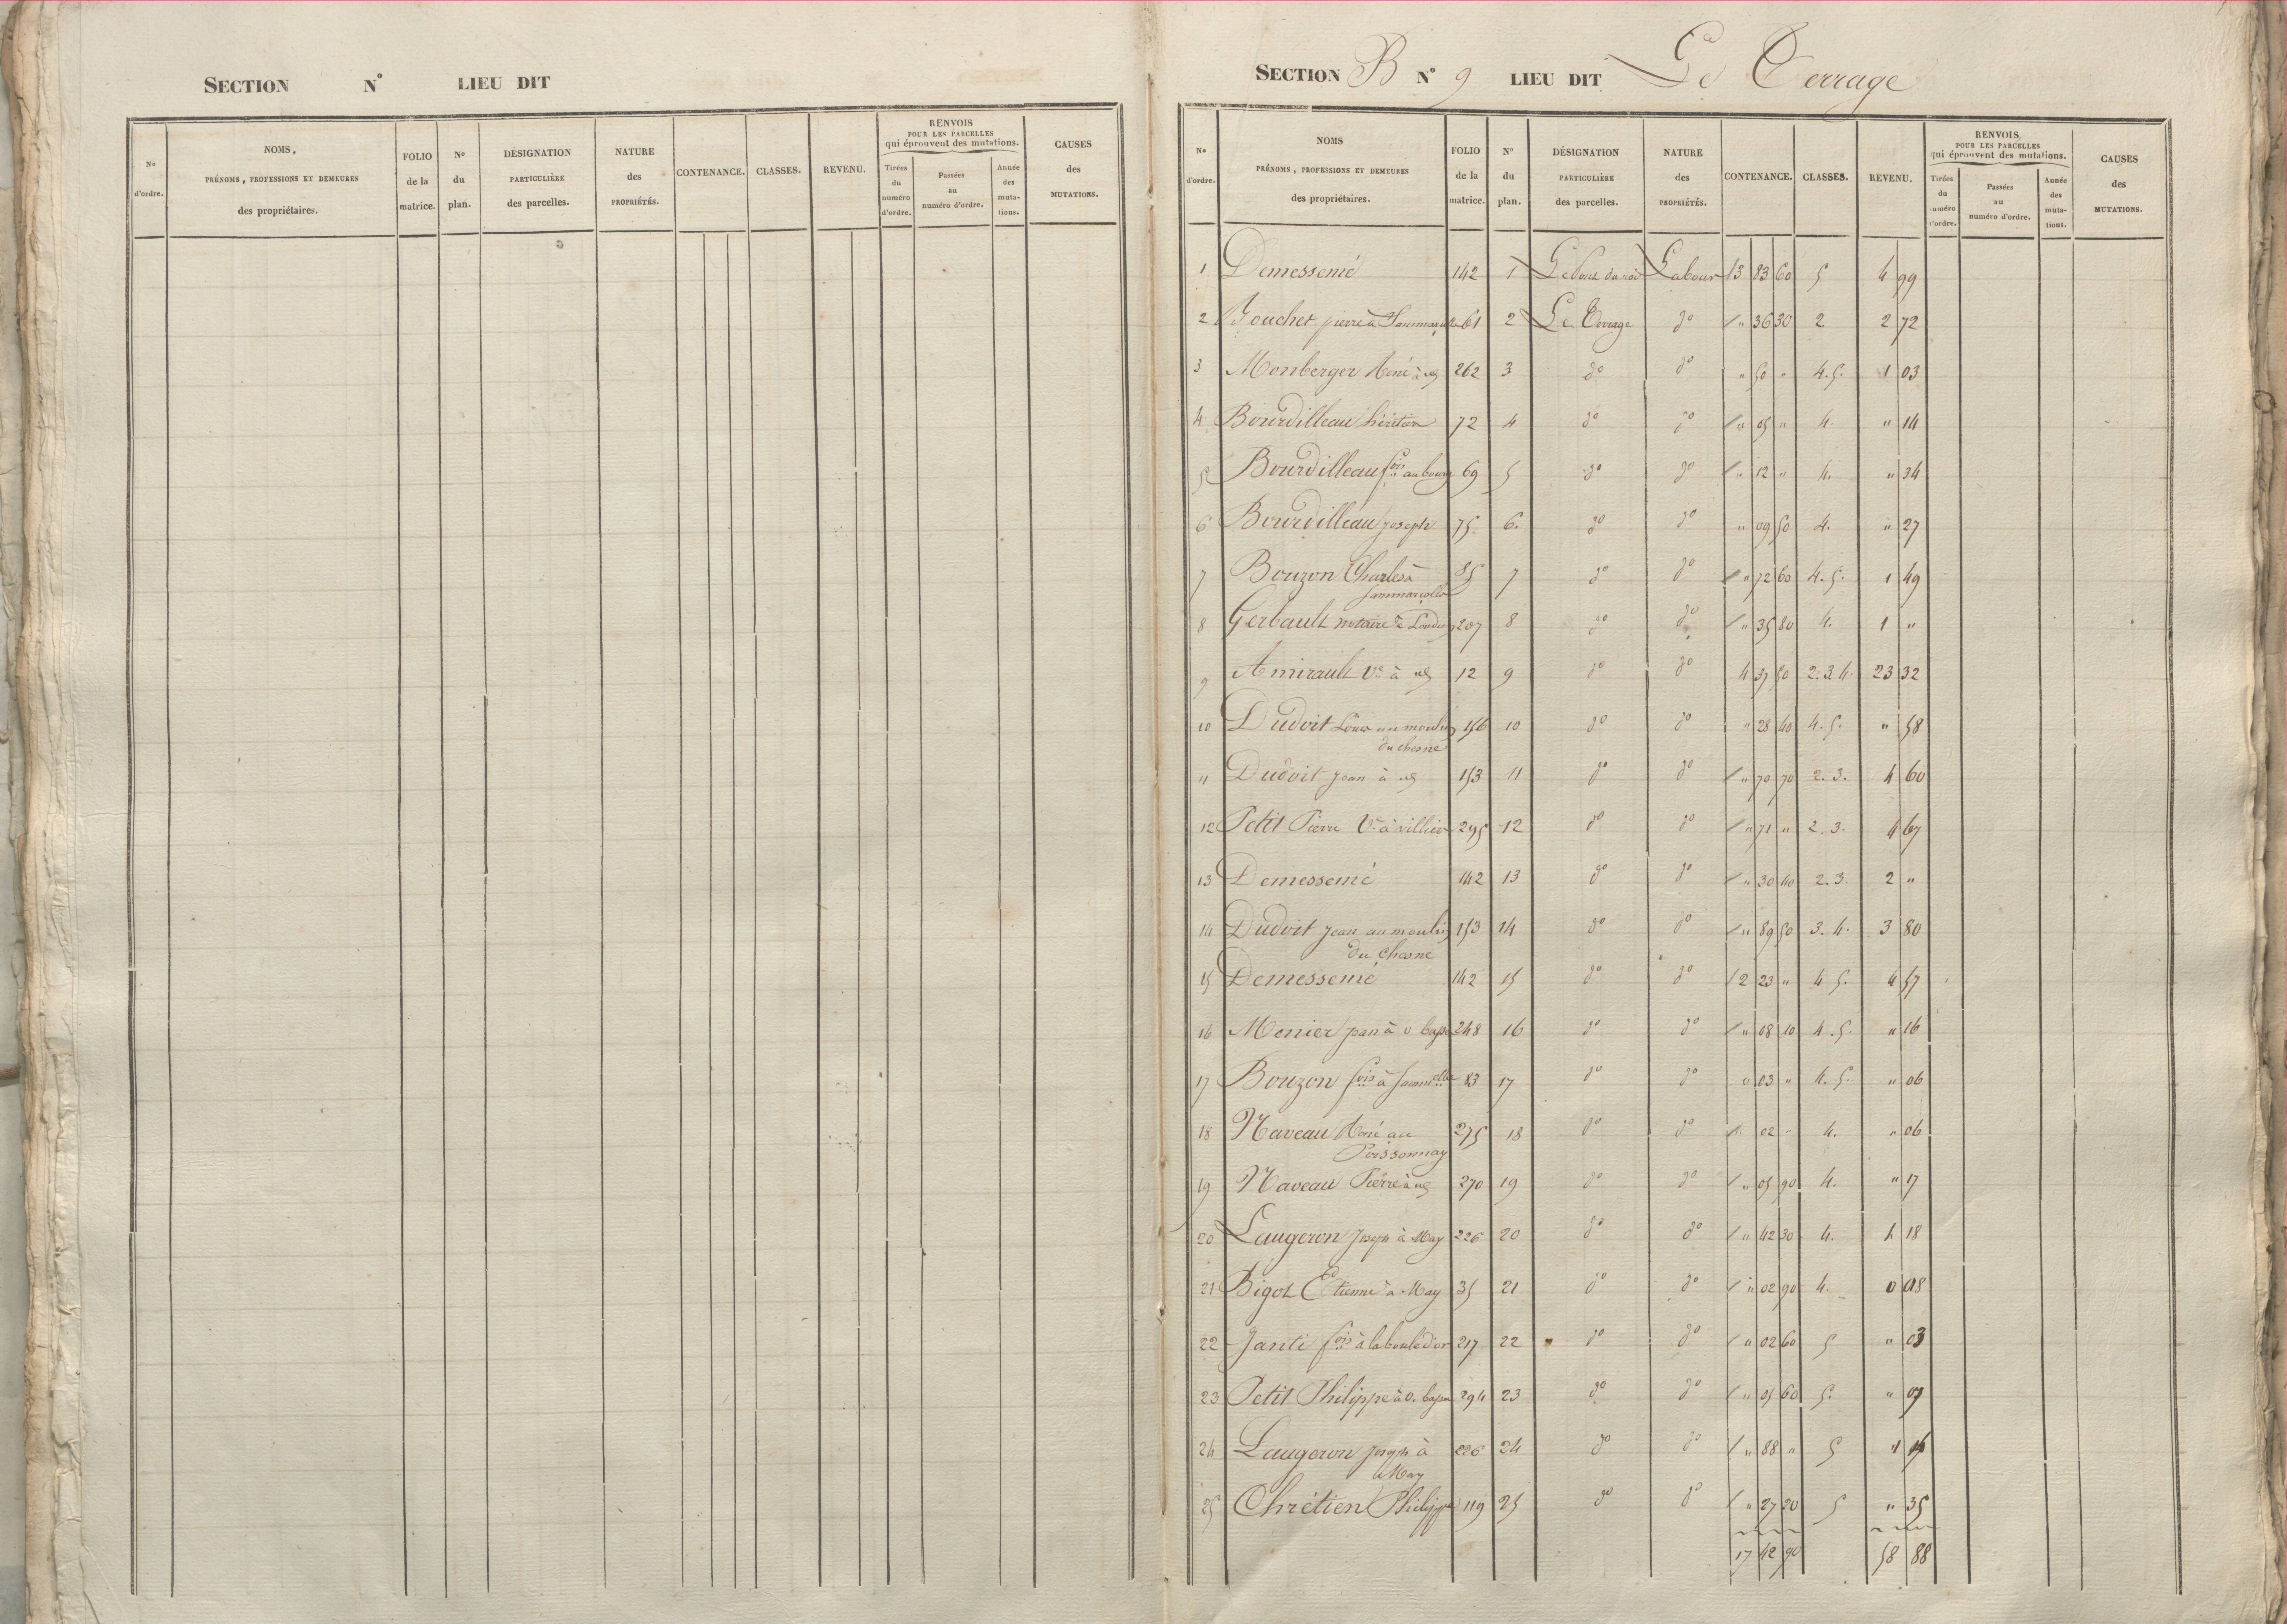 SECTION N° LIEU DIT
N° d'ordre. NOMS, PRÉNOMS, PROFESSIONS ET DEMEURES des propriétaires. FOLIO de la matrice. N° du plan. DÉSIGNATION PARTICULIÈRE des parcelles. NATURE des PROPRIÉTÉS. CONTENANCE. CLASSES. REVENU. RENVOIS POUR LES PARCELLES qui éprouvent des mutations. Tirées du numéro d'ordre. Passées au numéro d'ordre. Année des mutations. CAUSES des MUTATIONS.
SECTION B N° 9 LIEU DIT Le Terrage
N° d'ordre. NOMS PRÉNOMS, PROFESSIONS ET DEMEURES des propriétaires. FOLIO de la matrice. N° du plan. DÉSIGNATION PARTICULIÈRE des parcelles. NATURE des PROPRIÉTÉS. CONTENANCE. CLASSES. REVENU. RENVOIS POUR LES PARCELLES qui éprouvent des mutations. Tirées du numéro d'ordre. Passées au numéro d'ordre. Année des mutations. CAUSES des MUTATIONS.
1 Demessemé 142 1 Labour 3 83 60 5 4 99
2 pierre à 61 2 Le Terrage do " 36 30 2 2 72
3 Monberger René à 262 3 do do " 50 " 4.5. 1 03
4 Bourdilleau 72 4 do do " 05 " 4. " 14
5 Bourdilleau fois au bourg 69 5 do do " 12 " 4. " 34
6 Bourdilleau joseph 75 6. do do " 09 50 4. " 27
7 Bouzon Charles à 85 7 do do " 72 60 4.5. 1 49
Sammarçolle
8 Gerbault notaire à Loudun 207 8 do do " 35 80 4. 1 "
9 Amirault Ve à 12 9 do do 4 37 50 2.3.4. 23 32
10 Dudoit Louis au moulin 156 10 do do " 28 40 4.5. " 58
du chesne
11 Dudoit jean à 153 11 do do " 70 70 2.3. 4 60
12 Petit Pierre Ve à villiers 295 12 do do " 71 " 2.3. 4 67
13 Demessemé 142 13 do do " 30 40 2.3. 2 "
14 Dudoit jean au moulin 153 14 do do " 89 50 3.4. 3 80
du chesne
15 Demessemé 142 15 do do 2 23 " 4 5. 4 57
16 Menier jean à 248 16 do do " 08 10 4.5. " 16
17 Bouzon fois à 83 17 do do 0 03 " 4.5. " 06
18 Naveau René au 275 18 do do 02 4. " 06
Poissonnay
19 Naveau Pierre à 270 19 do do " 05 90 4. " 17
20 Laugeron Joseph à May 226 20 do do " 42 30 4. 1 18
21 Bigot Etienne à May 35 21 do do " 02 90 4. 0 08
22 Janti fois à la boule d'or 217 22 do do " 02 60 5 " 03
23 Petit Philippe à 294 23 do do " 05 60 5. " 07
24 Laugeron joseph à 226 24 do do " 88 " 5
May
25 Chrétien Philippe 119 25 do do " 27 20 5 " 35
17 42 90 58 88